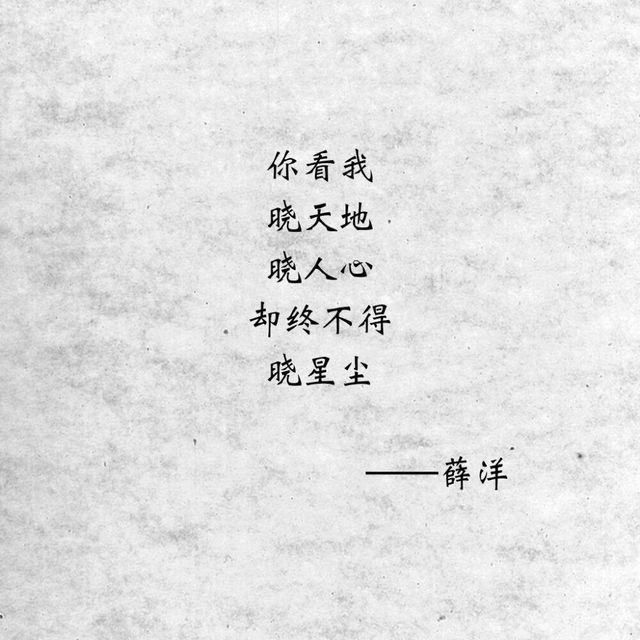 你看我
晓天地
晓人心
却终不得
晓星尘
——薛洋